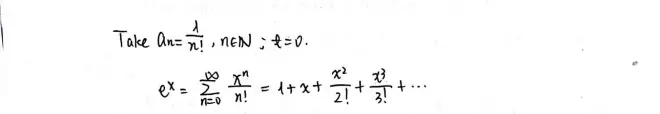 Take an = 1/n!, n∈ℕ ; t=0.
e^x = ∑_{n=0}^{∞} x^n/n! = 1+x+ x^2/2! + x^3/3! + ⋯